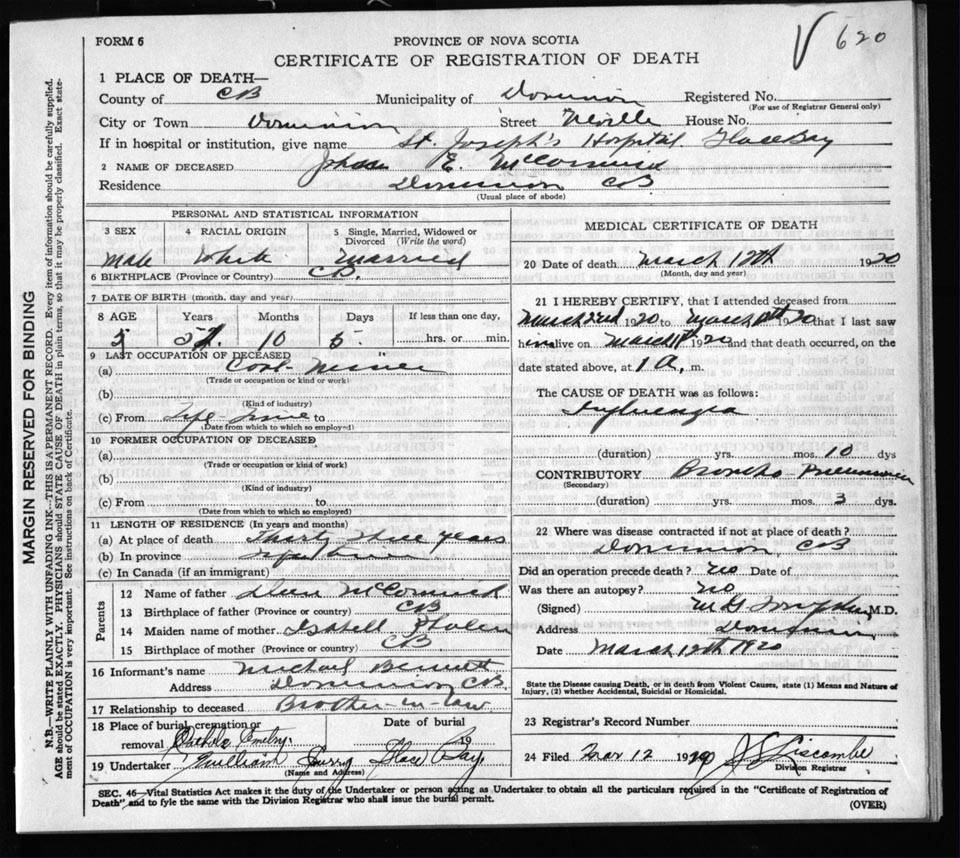 620
FORM 6
PROVINCE OF NOVA SCOTIA
CERTIFICATE OF REGISTRATION OF DEATH
1 PLACE OF DEATH—
County of CB Municipality of Dominion Registered No.
(For use of Registrar General only)
City or Town Dominion Street Neville House No.
If in hospital or institution, give name St. Joseph's Hospital Glace Bay
2 NAME OF DECEASED E. McCormick
Residence Dominion CB
(Usual place of abode)
PERSONAL AND STATISTICAL INFORMATION
3 SEX 4 RACIAL ORIGIN 5 Single, Married, Widowed or Divorced (Write the word)
Male White Married
6 BIRTHPLACE (Province or Country) CB
7 DATE OF BIRTH (month, day and year)
8 AGE Years Months Days If less than one day,
10 hrs. or min.
9 LAST OCCUPATION OF DECEASED
(a) Coal-Miner
(Trade or occupation or kind or work)
(b)
(Kind of industry)
(c) From Life-time to
(Date from which to which so employed)
10 FORMER OCCUPATION OF DECEASED
(a)
(Trade or occupation or kind of work)
(b)
(Kind of industry)
(c) From to
(Date from which to which so employed)
11 LENGTH OF RESIDENCE (In years and months)
(a) At place of death Thirty three years
(b) In province Life time
(c) In Canada (if an immigrant)
Parents
12 Name of father McCormick
13 Birthplace of father (Province or country) CB
14 Maiden name of mother Isabell
15 Birthplace of mother (Province or country) CB
16 Informant's name Michael Bennett
Address Dominion CB
17 Relationship to deceased Brother-in-law
18 Place of burial, cremation or removal Date of burial 19
19 Undertaker William Glace Bay
(Name and Address)
MEDICAL CERTIFICATE OF DEATH
20 Date of death March 12th 1920
(Month, day and year)
21 I HEREBY CERTIFY, that I attended deceased from
March 2nd 1920 to March 1920 that I last saw
him alive on March 1920 and that death occurred, on the
date stated above, at 1 A, m.
The CAUSE OF DEATH was as follows:
Influenza
(duration) yrs. mos. 10 dys
CONTRIBUTORY Broncho-Pneumonia
(Secondary)
(duration) yrs. mos. 3 dys.
22 Where was disease contracted if not at place of death?
Dominion, CB
Did an operation precede death? No Date of
Was there an autopsy? No
(Signed) M.D.
Address Dominion
Date March 12th 1920
State the Disease causing Death, or in death from Violent Causes, state (1) Means and Nature of
Injury, (2) whether Accidental, Suicidal or Homicidal.
23 Registrar's Record Number
24 Filed Mar 12 1920 Liscombe
Division Registrar
SEC. 46—Vital Statistics Act makes it the duty of the Undertaker or person acting as Undertaker to obtain all the particulars required in the "Certificate of Registration of
Death" and to fyle the same with the Division Registrar who shall issue the burial permit.
(OVER)
MARGIN RESERVED FOR BINDING
N.B.—WRITE PLAINLY WITH UNFADING INK—THIS IS A PERMANENT RECORD. Every item of information should be carefully supplied.
AGE should be stated EXACTLY. PHYSICIANS should STATE CAUSE OF DEATH in plain terms, so that it may be properly classified. Exact state-
ment of OCCUPATION is very important. See instructions on back of Certificate.